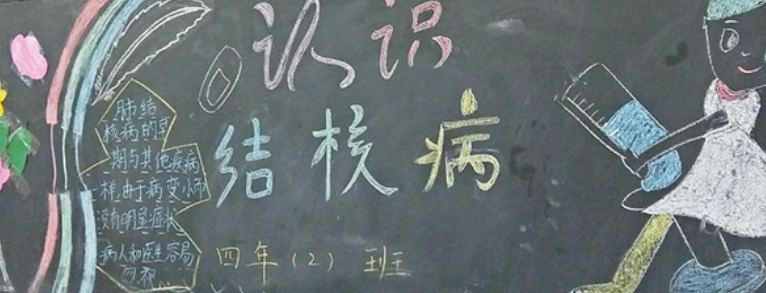 认识
结核病
肺结
核病的早
期与其他疾病
一样,由于病变小而
没有明显症状
病人和医生容易
忽视
四年(2)班